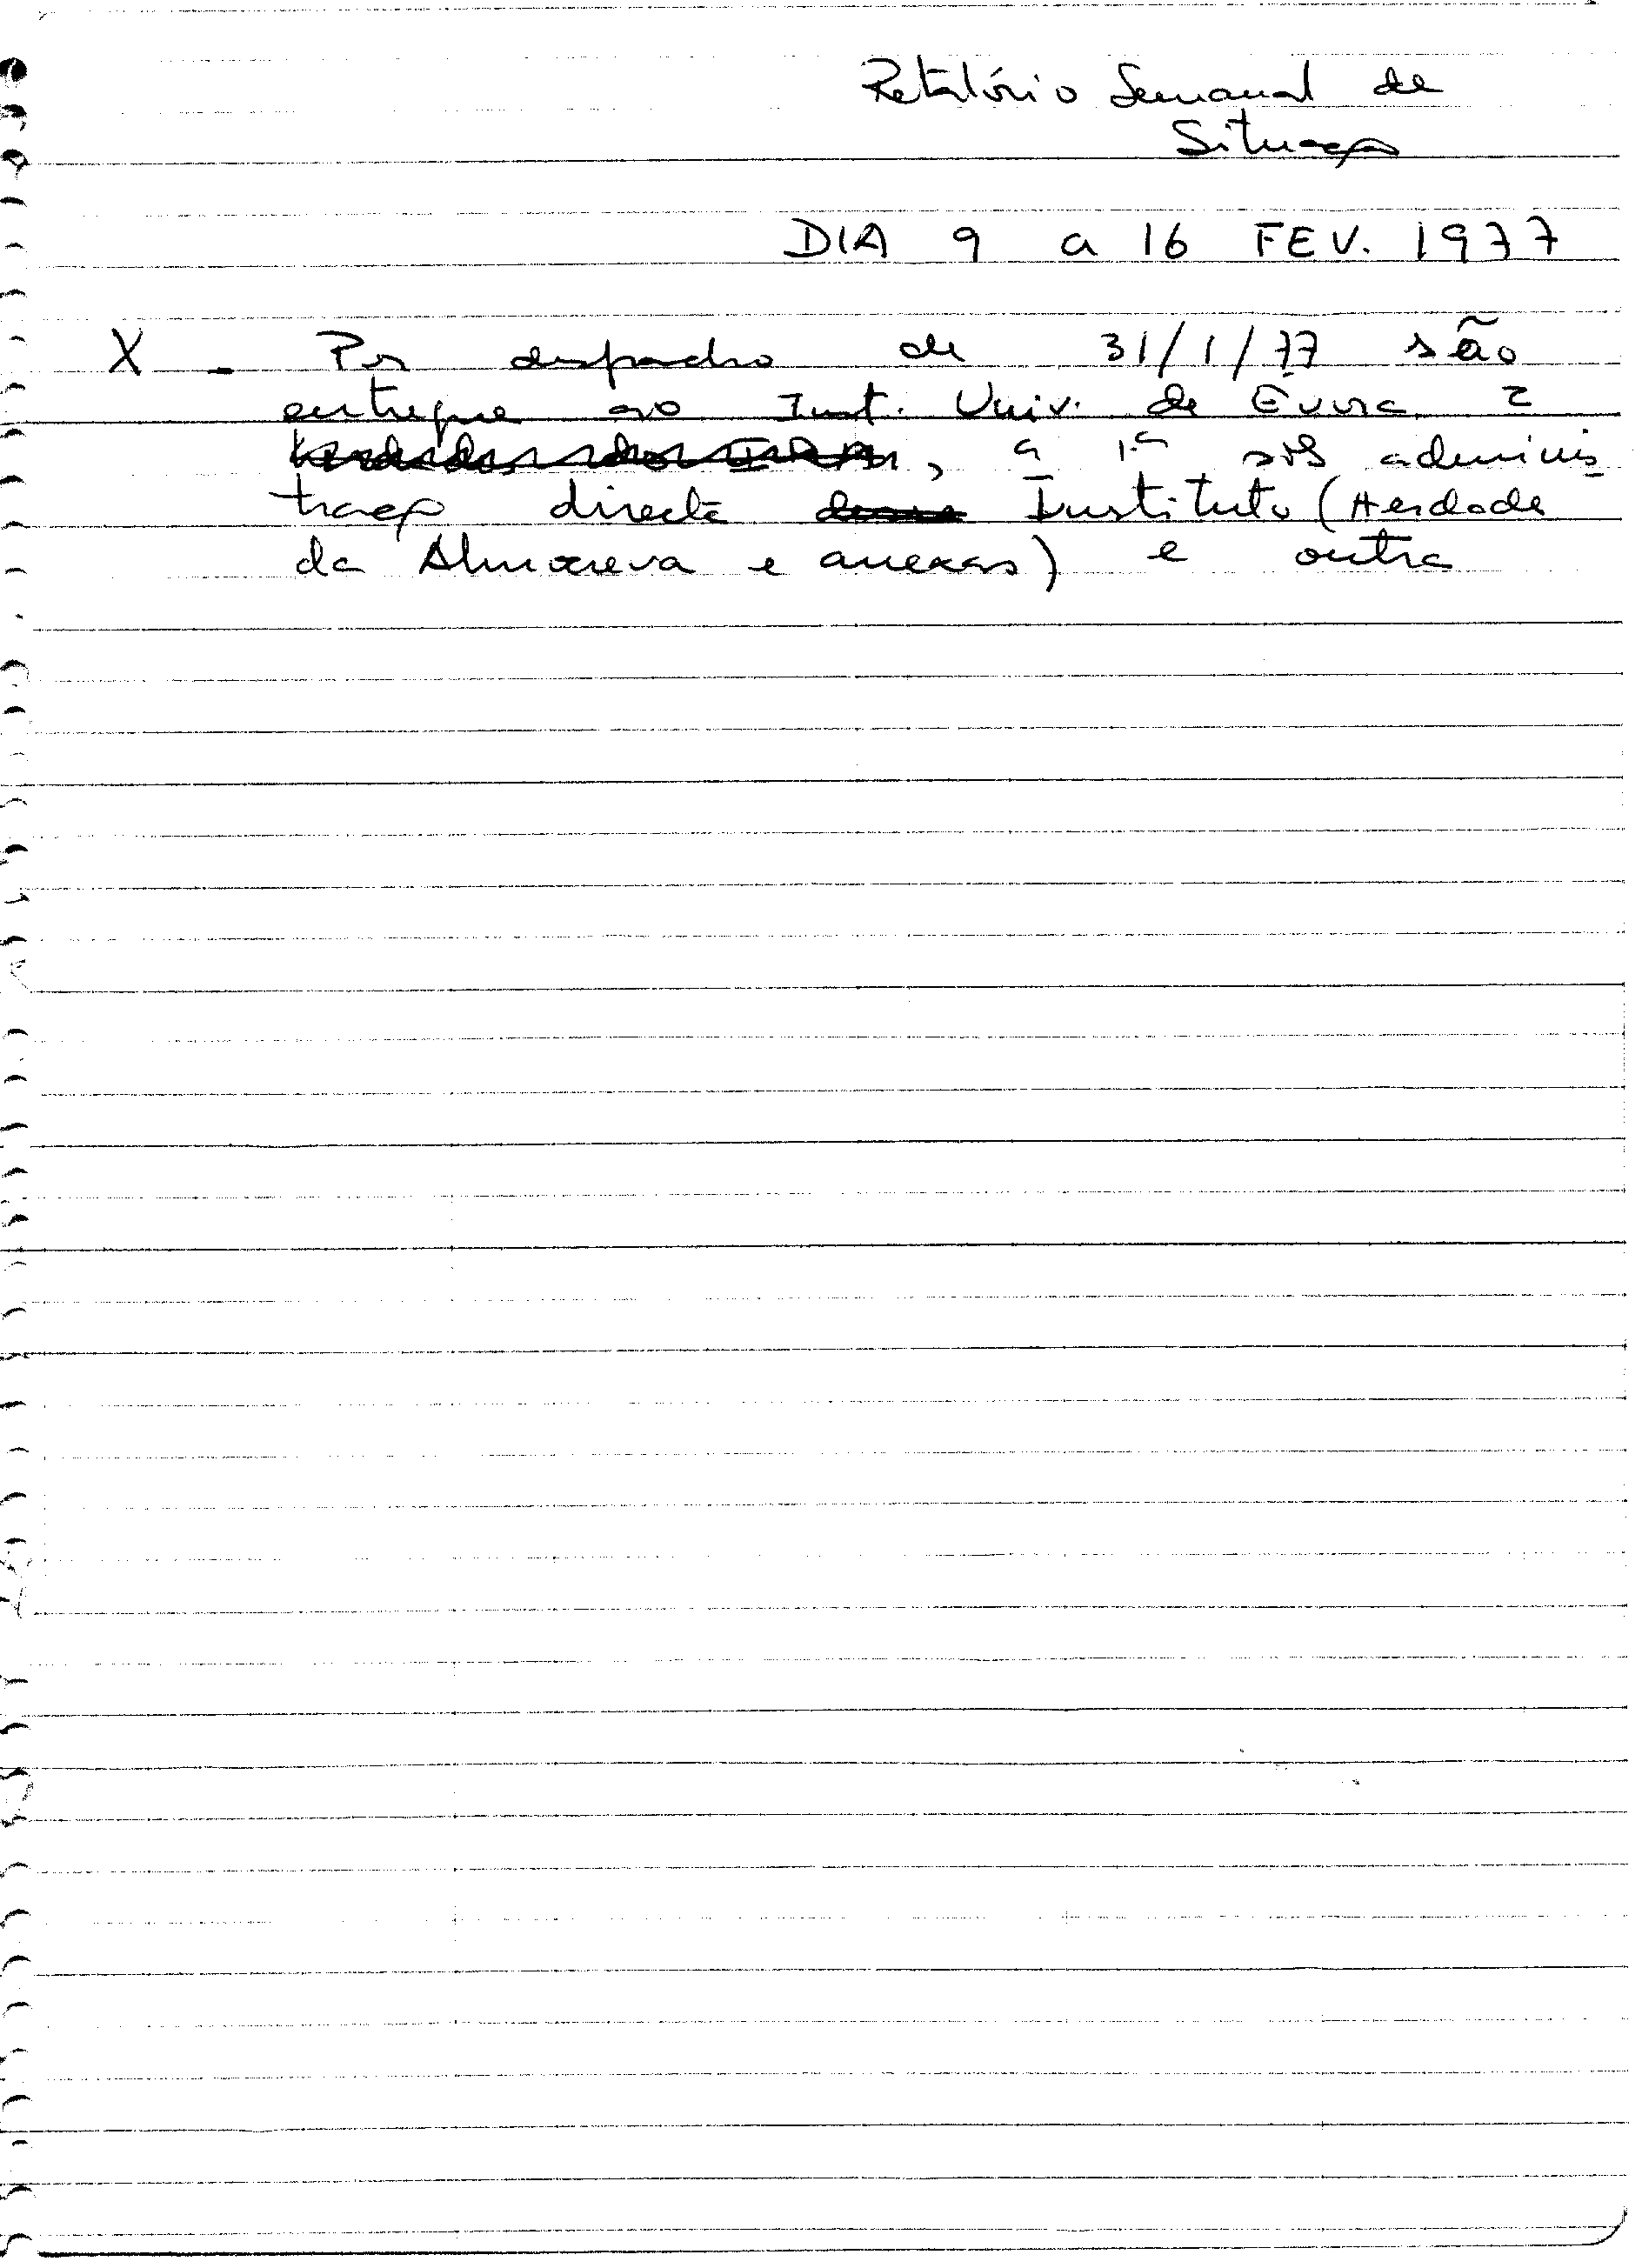 Relatório Semanal de
Situação
DIA 9 a 16 FEV. 1977
X - Por despacho de 31/1/77 são
entregue ao Inst. Univ. de Évora 2
herdades do IRA, a 1.ª sob adminis
tração directa desse Instituto (Herdade
da Almocreva e anexas) e outra